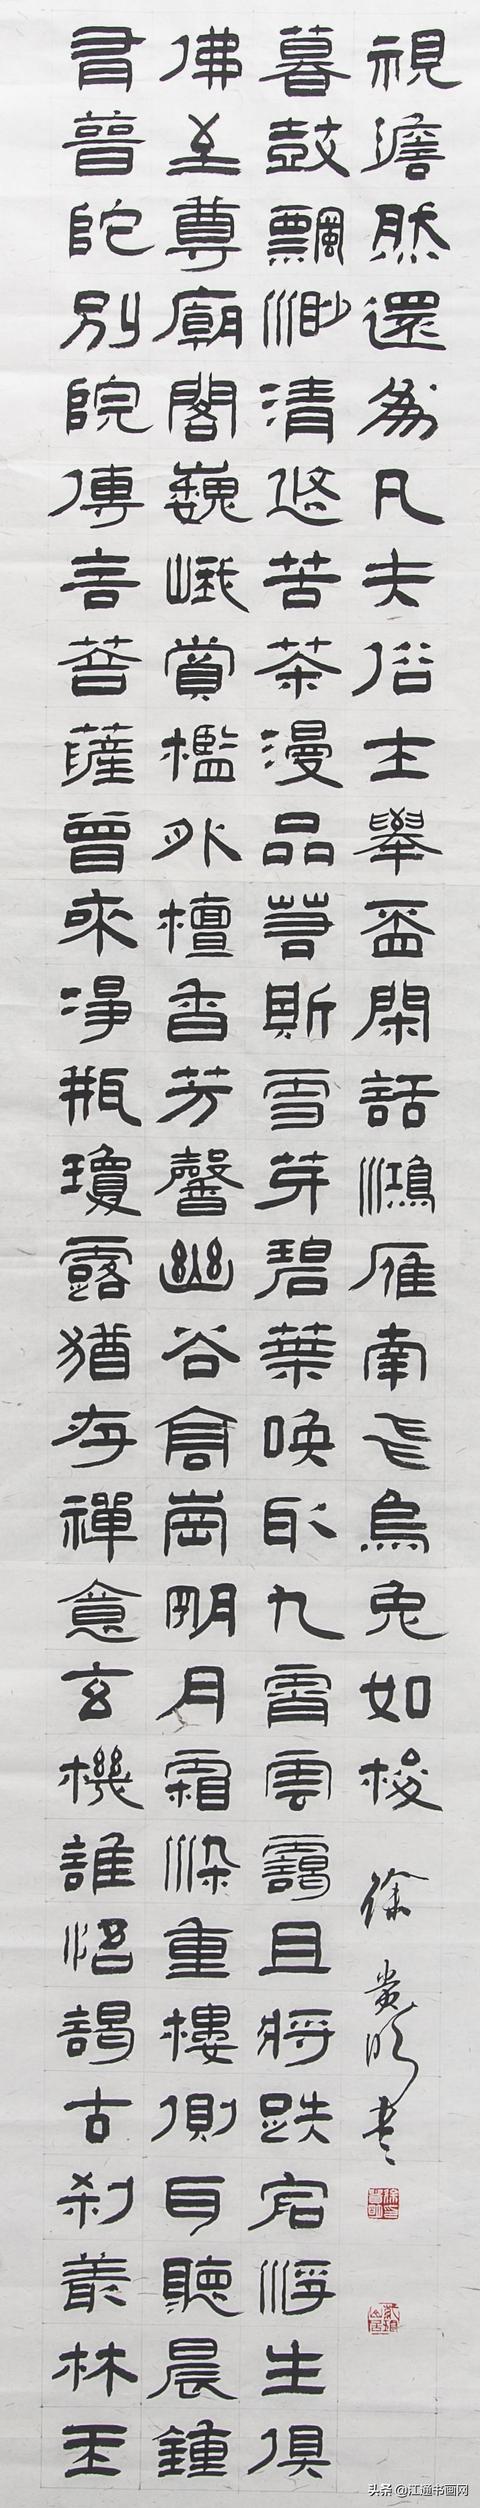 普陀別院傳言菩薩曾來淨瓶瓊露猶存禪意玄機誰悟謁古刹叢林玉
佛至尊廟閣巍峨賞檻外檀香芳馨幽谷倉崗明月霜染重樓側耳聽晨鐘
暮鼓飄渺清悠苦茶漫品等斯雪芽碧葉喚取九霄雲靄且將跌宕浮生俱
視澹然還為凡夫俗主舉盃閑話鴻雁南飛烏兔如梭 徐貴明書
头条 @江通书画网